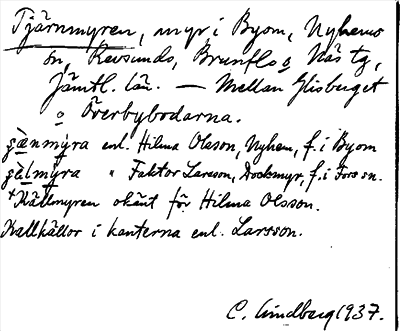 Tjärnmyren, myr i Byom, Nyhems
sn, Revsunds, Brunflo o Näs tg,
Jämtl. län. — Mellan Glisberget
o Överbybodarna.
enl. Hilma Olsson, Nyhem, f. i Byom
" Faktor Larsson, Dockmyr, f. i Fors sn.
*Källmyren okänt för Hilma Olsson.
Kallkällor i kanterna enl. Larsson.
C. Lindberg 1937.